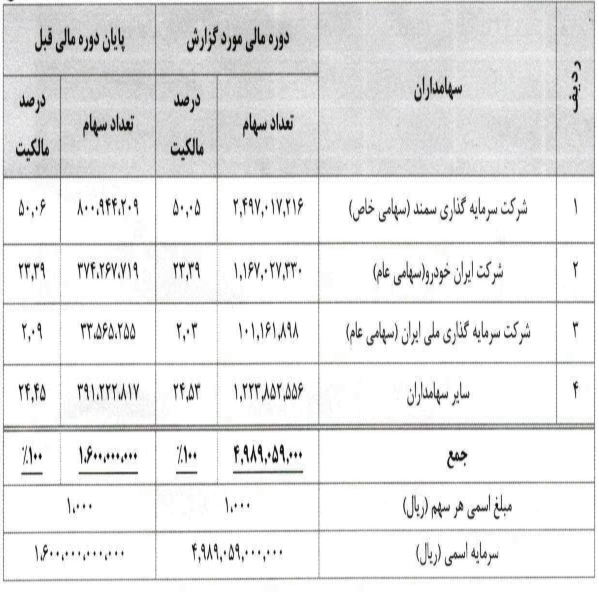 ردیف	سهامداران	دوره مالی مورد گزارش	پایان دوره مالی قبل
تعداد سهام	درصد مالکیت	تعداد سهام	درصد مالکیت
۱	شرکت سرمایه گذاری سمند (سهامی خاص)	۲,۴۹۷,۰۱۷,۲۱۶	۵۰,۰۵	۸۰۰,۹۴۴,۲۰۹	۵۰,۰۶
۲	شرکت ایران خودرو(سهامی عام)	۱,۱۶۷,۰۲۷,۳۳۰	۲۳,۳۹	۳۷۴,۲۶۷,۷۱۹	۲۳,۳۹
۳	شرکت سرمایه گذاری ملی ایران (سهامی عام)	۱۰۱,۱۶۱,۸۹۸	۲,۰۳	۳۳,۵۶۵,۲۵۵	۲,۰۹
۴	سایر سهامداران	۱,۲۲۳,۸۵۲,۵۵۶	۲۴,۵۳	۳۹۱,۲۲۲,۸۱۷	۲۴,۴۵
جمع	۴,۹۸۹,۰۵۹,۰۰۰	٪۱۰۰	۱,۶۰۰,۰۰۰,۰۰۰	٪۱۰۰
مبلغ اسمی هر سهم (ریال)	۱,۰۰۰	۱,۰۰۰
سرمایه اسمی (ریال)	۴,۹۸۹,۰۵۹,۰۰۰,۰۰۰	۱,۶۰۰,۰۰۰,۰۰۰,۰۰۰